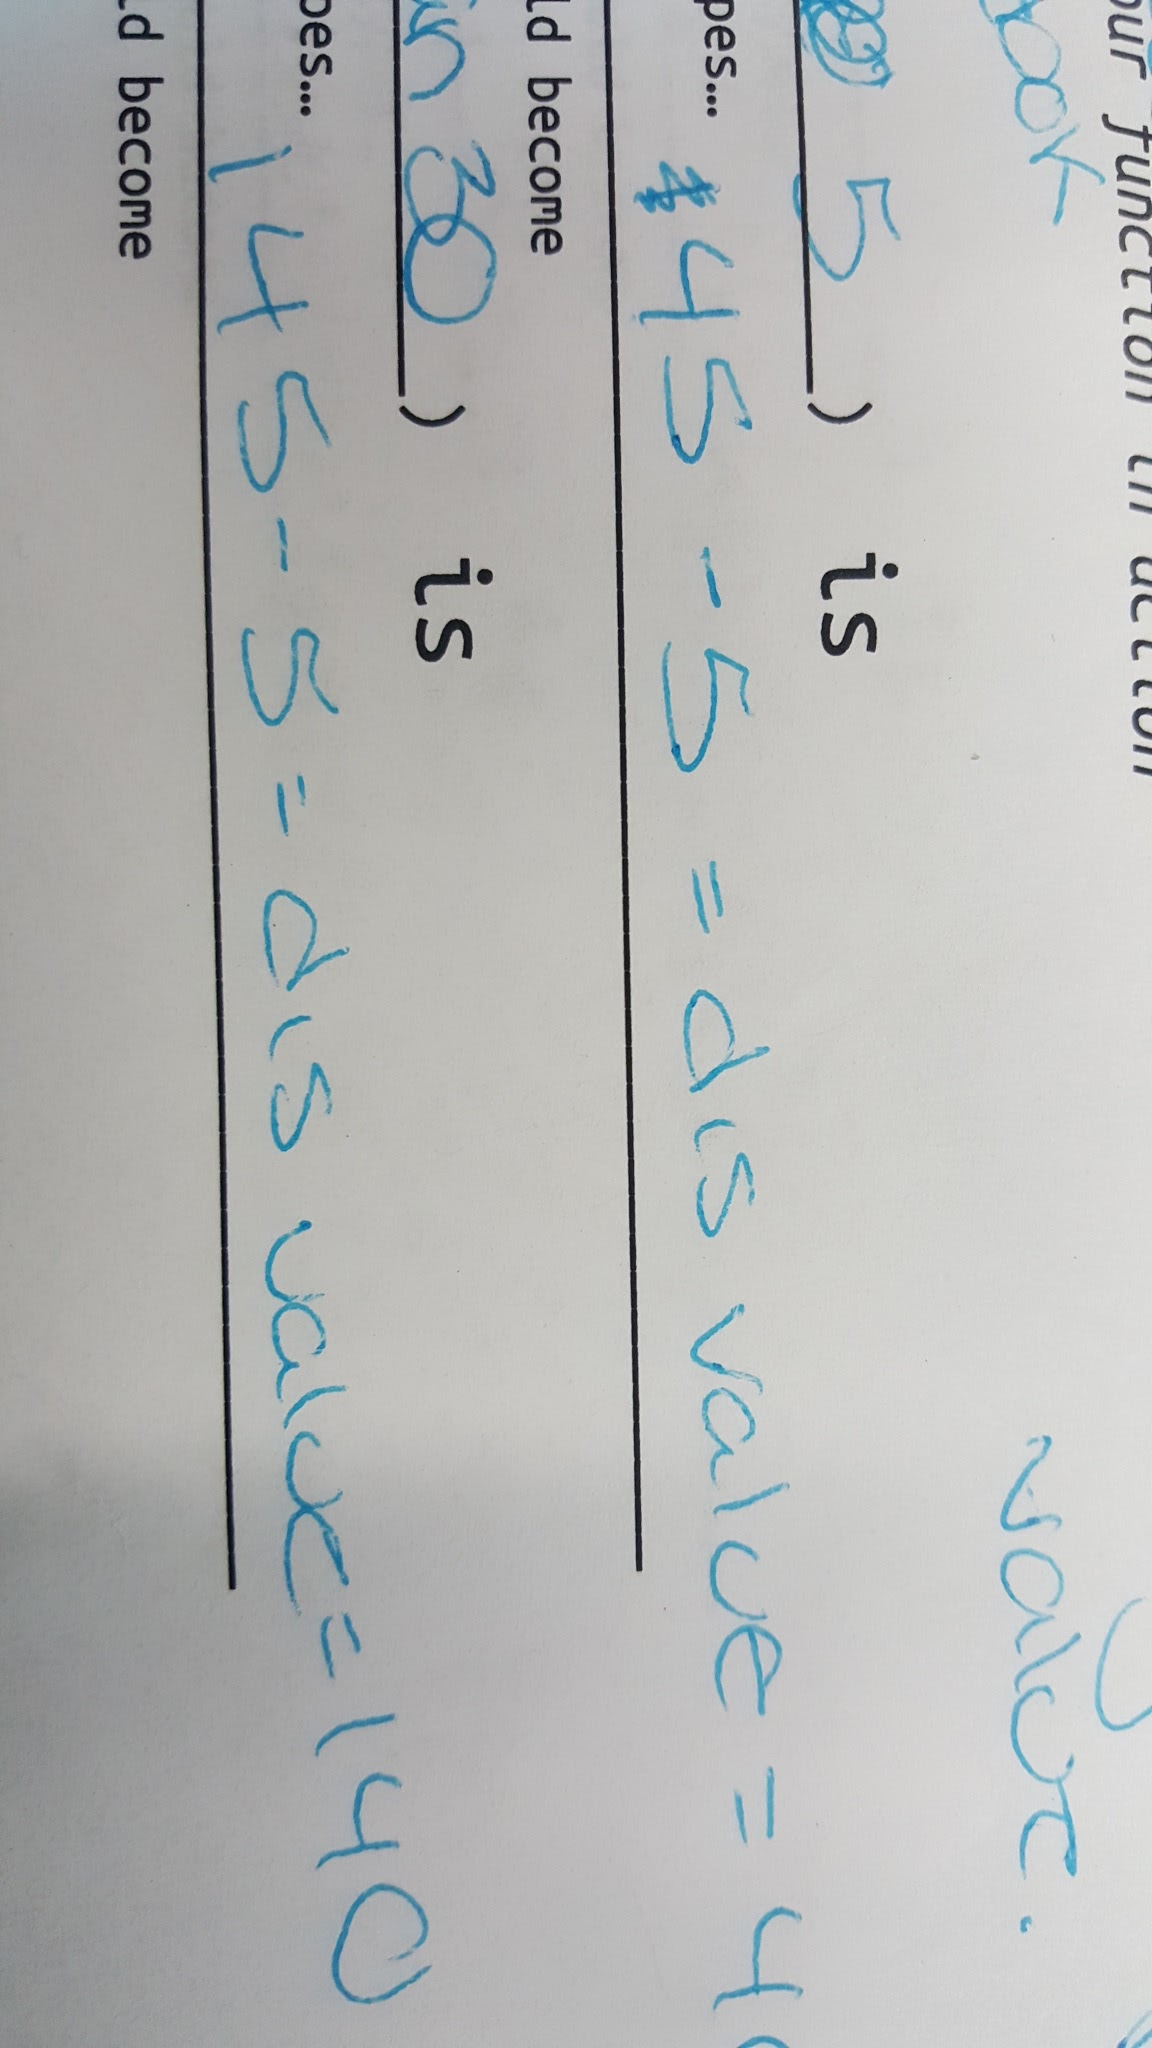 our function in action
value.
5 ) is
pes... 45 - 5 = dis value = 4
ld become
in 30 ) is
pes... 145 - 5 = dis value = 140
ld become